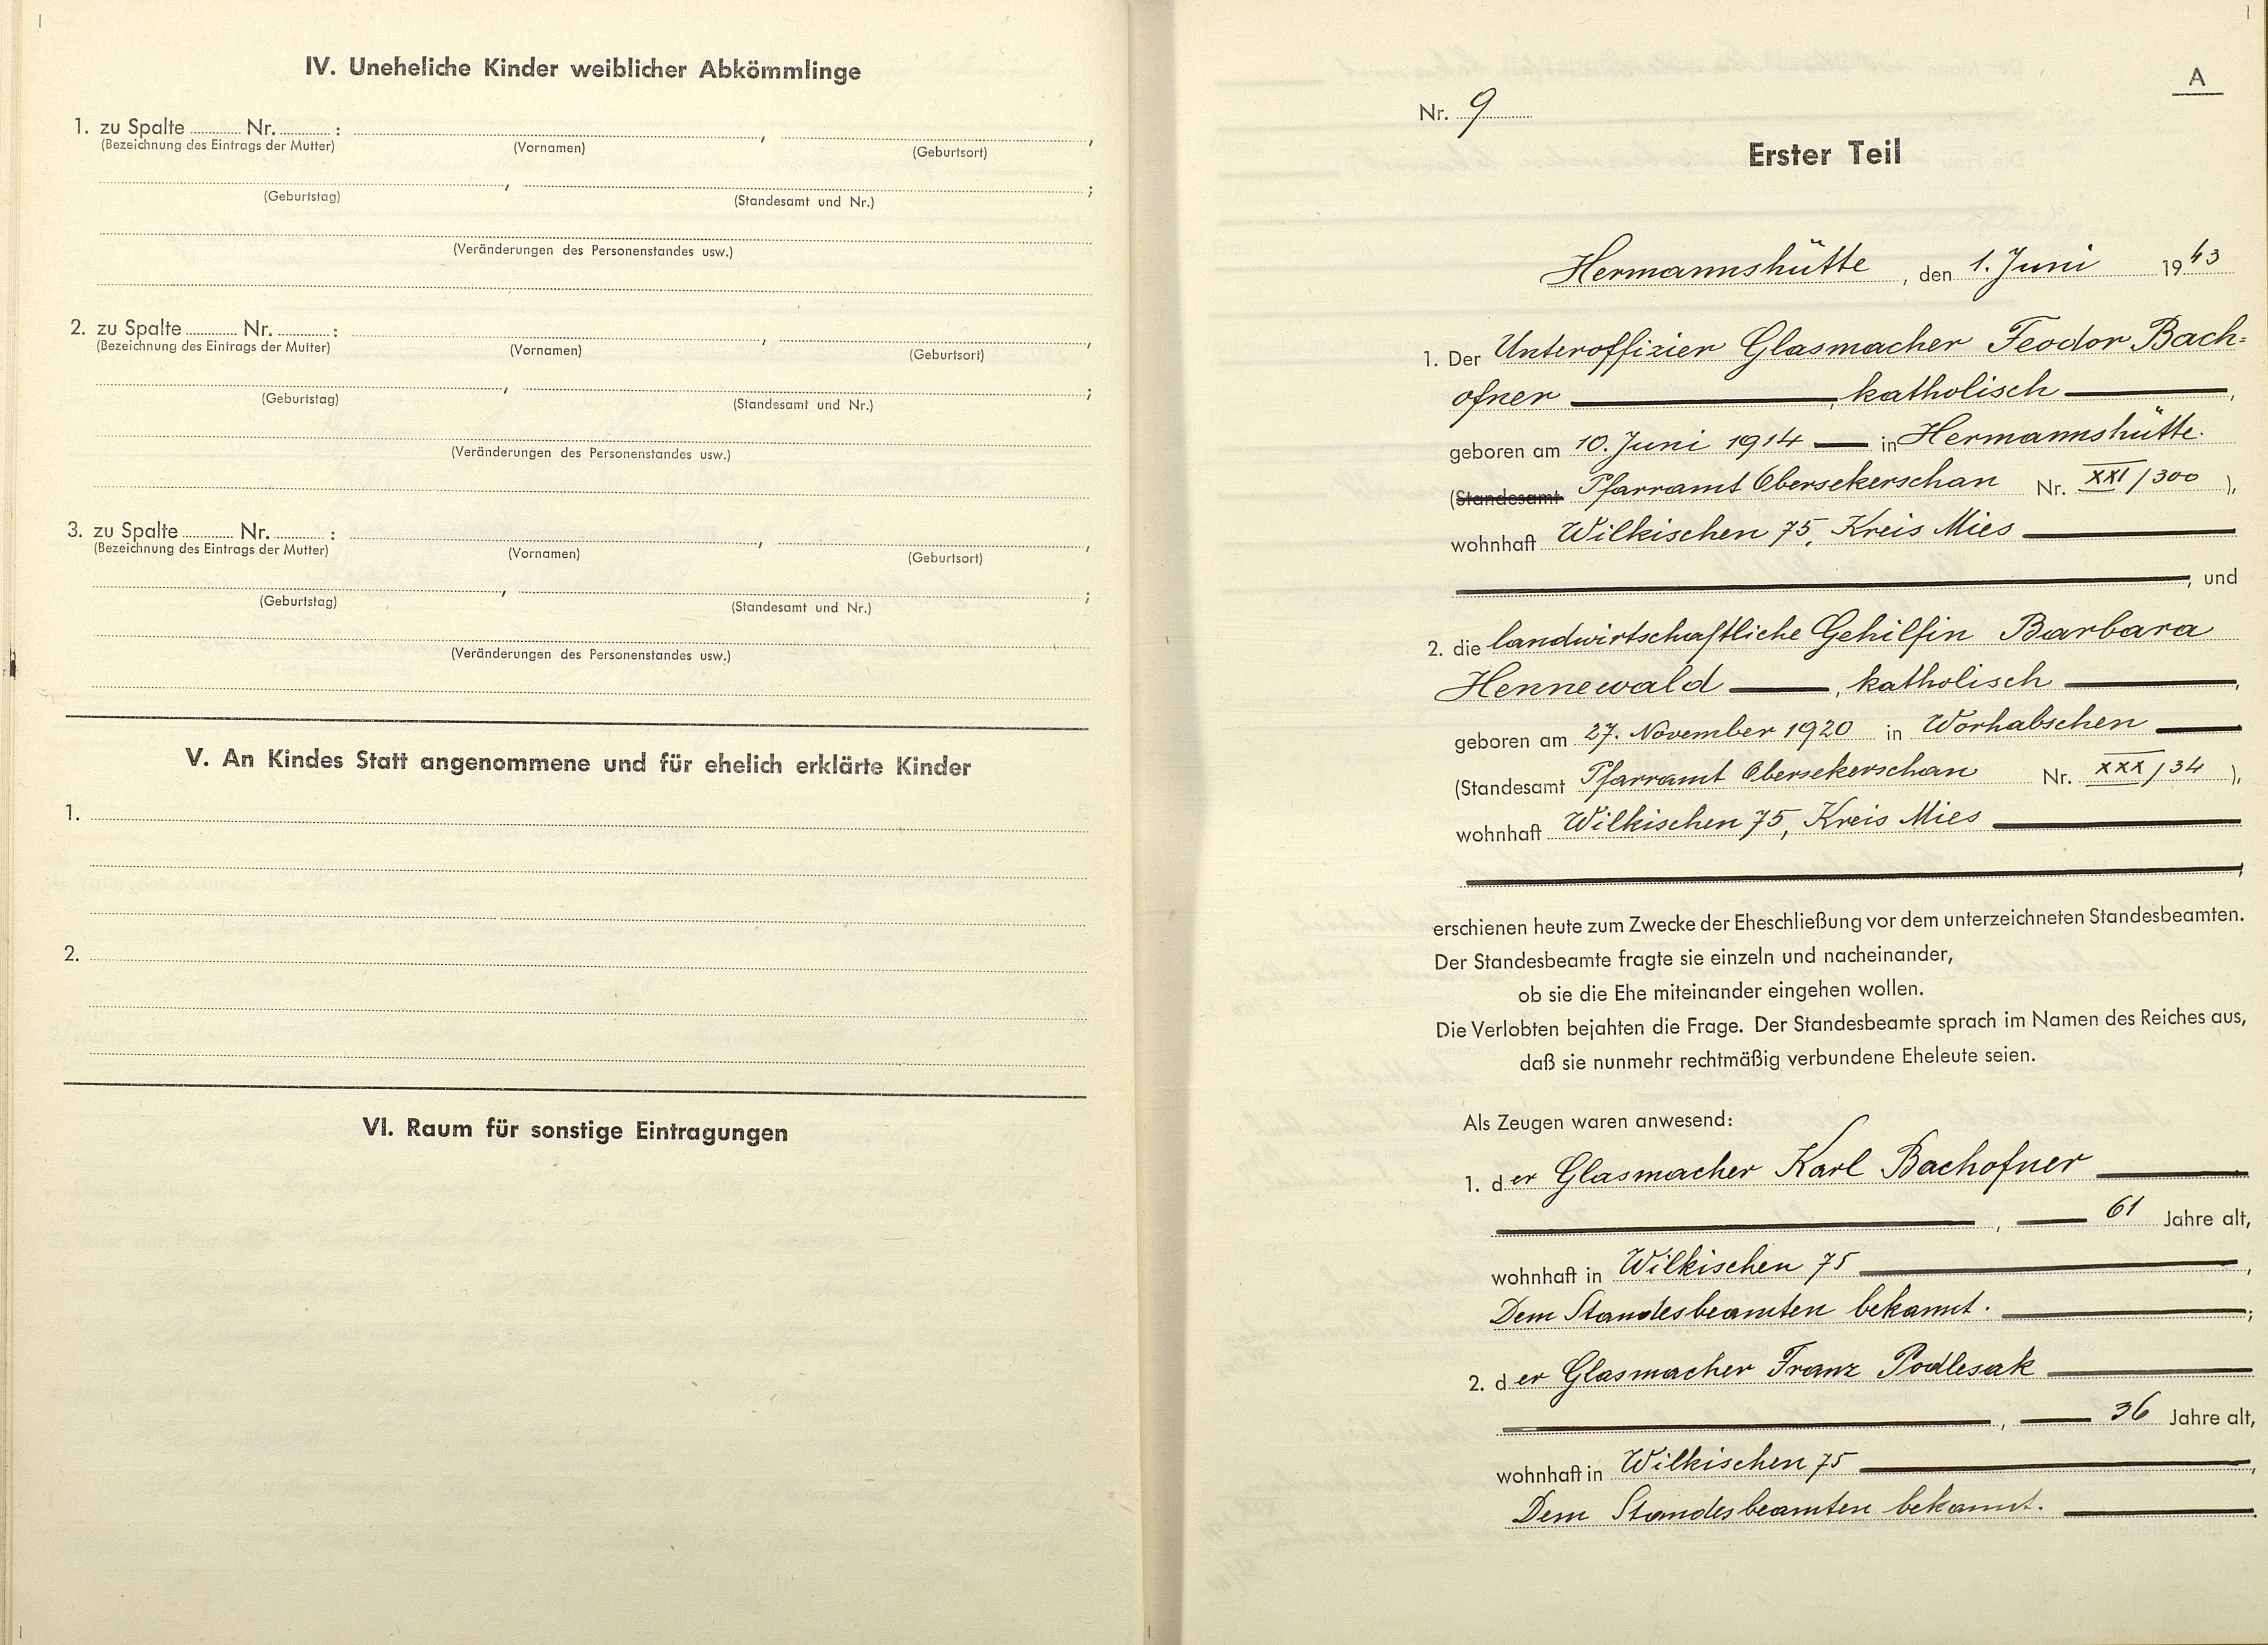 IV. Uneheliche Kinder weiblicher Abkömmlinge
1. zu Spalte ........ Nr. ........ : ........ , ........ ,
(Bezeichnung des Eintrags der Mutter) (Vornamen) (Geburtsort)
........ , ........ ;
(Geburtstag) (Standesamt und Nr.)
(Veränderungen des Personenstandes usw.)
2. zu Spalte ........ Nr. ........ : ........ , ........ ,
(Bezeichnung des Eintrags der Mutter) (Vornamen) (Geburtsort)
........ , ........ ;
(Geburtstag) (Standesamt und Nr.)
(Veränderungen des Personenstandes usw.)
3. zu Spalte ........ Nr. ........ : ........ , ........ ,
(Bezeichnung des Eintrags der Mutter) (Vornamen) (Geburtsort)
........ , ........ ;
(Geburtstag) (Standesamt und Nr.)
(Veränderungen des Personenstandes usw.)
V. An Kindes Statt angenommene und für ehelich erklärte Kinder
1.
2.
VI. Raum für sonstige Eintragungen
A
Nr. 9
Erster Teil
Hermannshütte, den 1. Juni 1943
1. Der Unteroffizier Glasmacher Feodor Bach=
ofner —, katholisch —,
geboren am 10. Juni 1914 — in Hermannshütte.
(Standesamt Pfarramt Obersekerschan Nr. XXI/300),
wohnhaft Wilkischen 75, Kreis Mies —
—, und
2. die landwirtschaftliche Gehilfin Barbara
Hennewald —, katholisch —,
geboren am 27. November 1920 in Worhabschen —
(Standesamt Pfarramt Obersekerschan Nr. XXX/34),
wohnhaft Wilkischen 75, Kreis Mies —
—,
erschienen heute zum Zwecke der Eheschließung vor dem unterzeichneten Standesbeamten.
Der Standesbeamte fragte sie einzeln und nacheinander,
ob sie die Ehe miteinander eingehen wollen.
Die Verlobten bejahten die Frage. Der Standesbeamte sprach im Namen des Reiches aus,
daß sie nunmehr rechtmäßig verbundene Eheleute seien.
Als Zeugen waren anwesend:
1. der Glasmacher Karl Bachofner —
—, — 61 Jahre alt,
wohnhaft in Wilkischen 75 —,
Dem Standesbeamten bekannt. —;
2. der Glasmacher Franz Podlesak —
—, — 36 Jahre alt,
wohnhaft in Wilkischen 75 —,
Dem Standesbeamten bekannt. —.